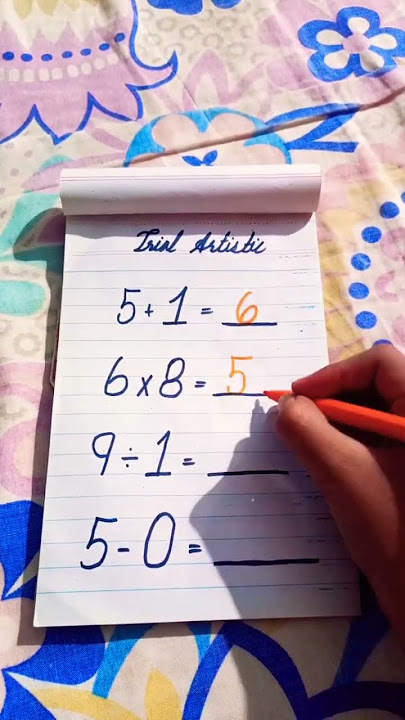 Trial Artistic
5 + 1 = 6
6 x 8 = 5
9 ÷ 1 = ___
5 - 0 = ___